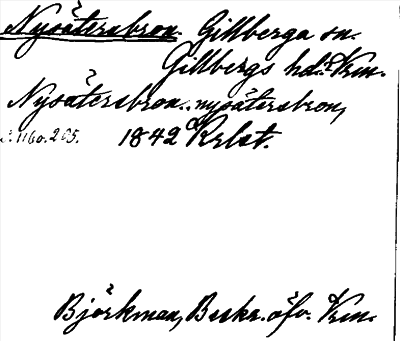 Nysätersbron. Gillberga sn.
Gillbergs hd. Vrm.
Nysätersbron. nysätersbron,
s. 1160. 205. 1842 Krlst.
Björkman, Beskr. öfv. Vrm.